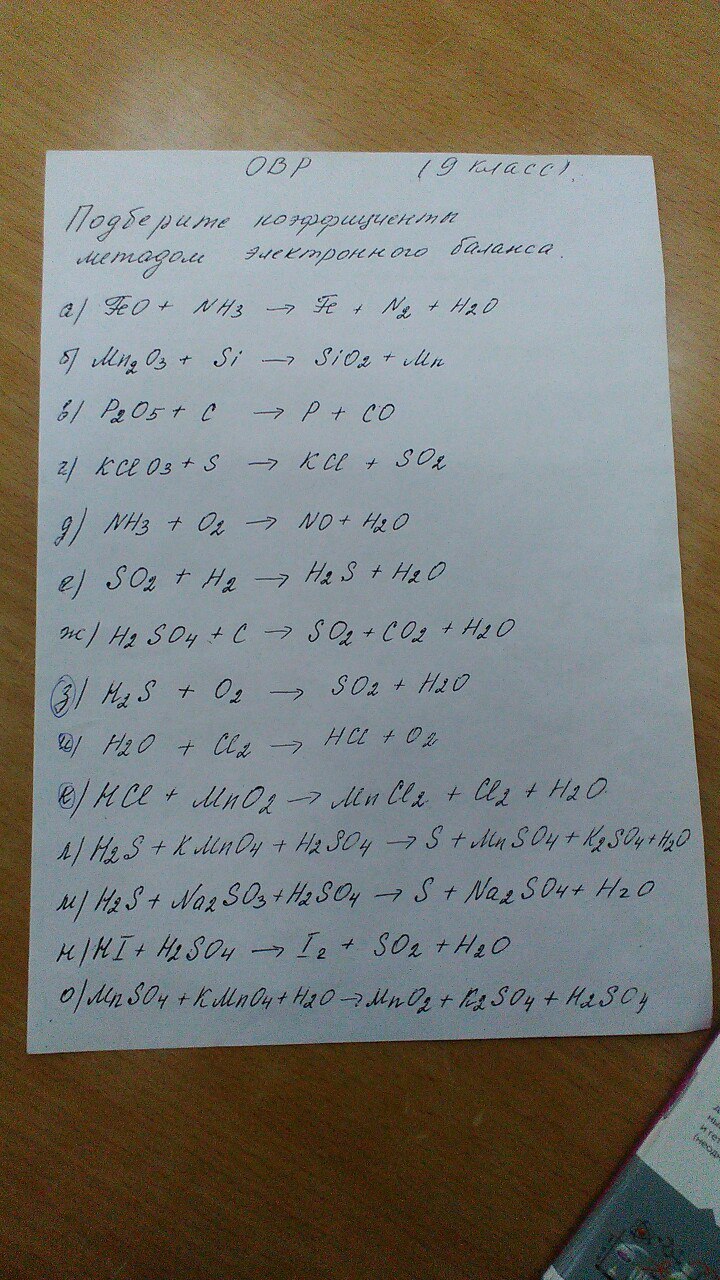 ОВР (9 класс).
Подберите коэффициенты
методом электронного баланса.
а) FeO + NH₃ → Fe + N₂ + H₂O
б) Mn₂O₃ + Si → SiO₂ + Mn
в) P₂O₅ + C → P + CO
г) KClO₃ + S → KCl + SO₂
д) NH₃ + O₂ → NO + H₂O
е) SO₂ + H₂ → H₂S + H₂O
ж) H₂SO₄ + C → SO₂ + CO₂ + H₂O
з) H₂S + O₂ → SO₂ + H₂O
и) H₂O + Cl₂ → HCl + O₂
к) HCl + MnO₂ → MnCl₂ + Cl₂ + H₂O
л) H₂S + KMnO₄ + H₂SO₄ → S + MnSO₄ + K₂SO₄ + H₂O
м) H₂S + Na₂SO₃ + H₂SO₄ → S + Na₂SO₄ + H₂O
н) HI + H₂SO₄ → I₂ + SO₂ + H₂O
о) MnSO₄ + KMnO₄ + H₂O → MnO₂ + K₂SO₄ + H₂SO₄